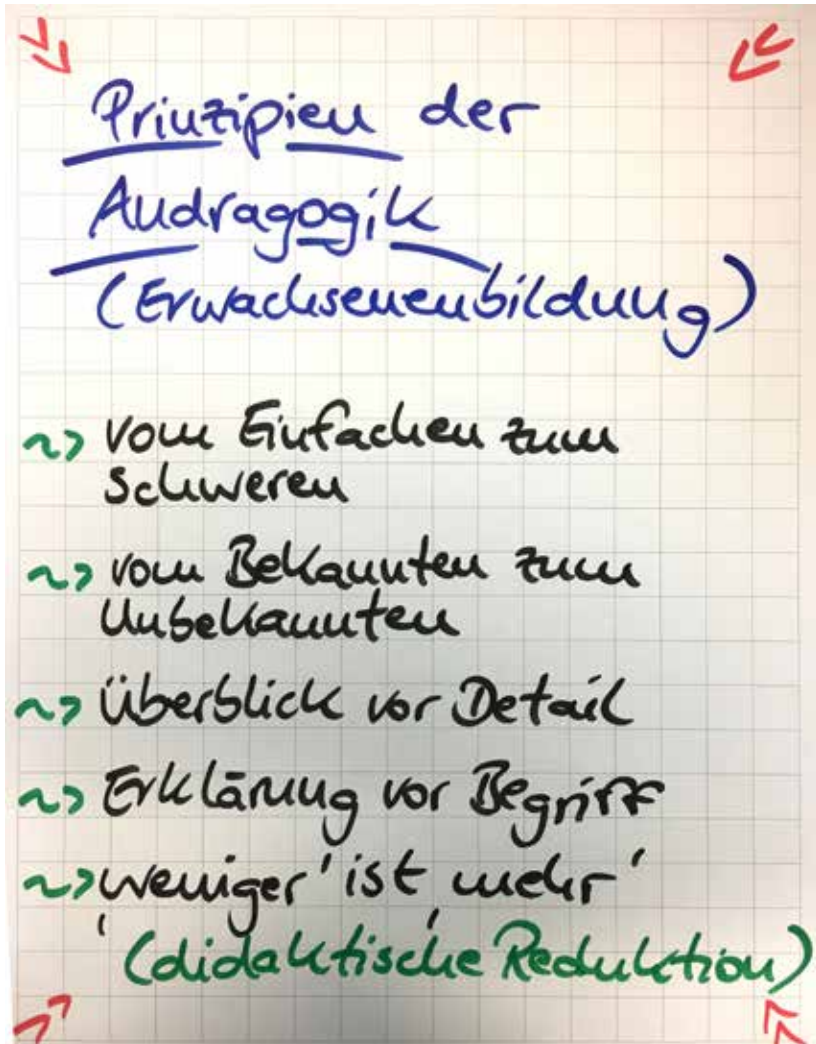 Prinzipien der
Andragogik
(Erwachsenenbildung)
~> vom Einfachen zum
Schweren
~> vom Bekannten zum
Unbekannten
~> Überblick vor Detail
~> Erklärung vor Begriff
~> ‚weniger' ist ‚mehr'
(didaktische Reduktion)